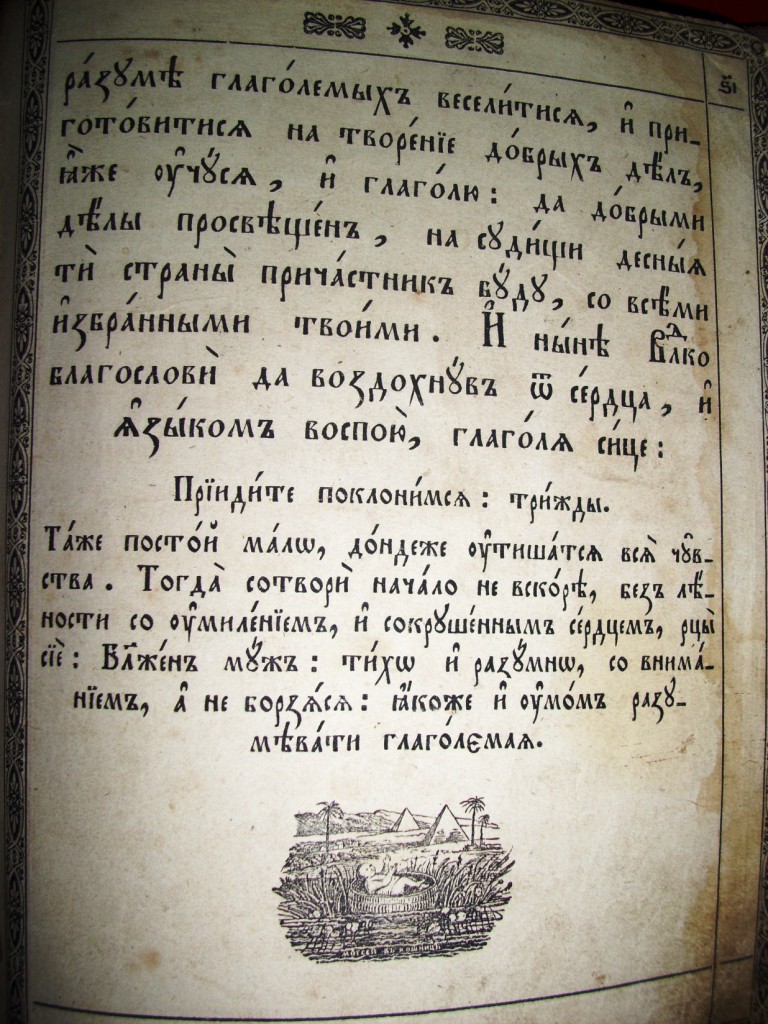 ѕ҃і
ра́зꙋмѣ глаго́лемыхъ весели́тисѧ, и҆ при-
гото́витисѧ на творе́нїе до́брыхъ дѣ́лъ,
ꙗ҆̀же ѹ҆чꙋ́сѧ, и҆ глаго́лю: да до́брыми
дѣ́лы просвѣще́нъ, на сꙋди́щи десны́ѧ
тѝ страны̀ прича́стникъ бꙋ́дꙋ, со всѣ́ми
и҆збра́нными твои́ми. И҆ ны́нѣ Влⷣко
благословѝ да воздохнꙋ́въ ѿ се́рдца, и҆
ѧ҆зы́комъ воспою̀, глаго́лѧ си́це:
Прїиди́те поклони́мсѧ: три́жды.
Та́же посто́й ма́лѡ, до́ндеже ѹ҆тиша́тсѧ всѧ̀ чꙋ̑в-
ства. Тогда̀ сотворѝ нача́ло не вско́рѣ, безъ лѣ́-
ности со ѹ҆миле́нїемъ, и҆ сокрꙋше́ннымъ се́рдцемъ, рцы̀
сїѐ: Бл҃же́нъ мꙋ́жъ: ти́хѡ и҆ разꙋ́мнѡ, со внима́-
нїемъ, а҆ не борзѧ́сѧ: ꙗ҆́коже и҆ ѹ҆мо́мъ разꙋ-
мѣва́ти глаго́лємаѧ.
моѵсей въ кошницѣ